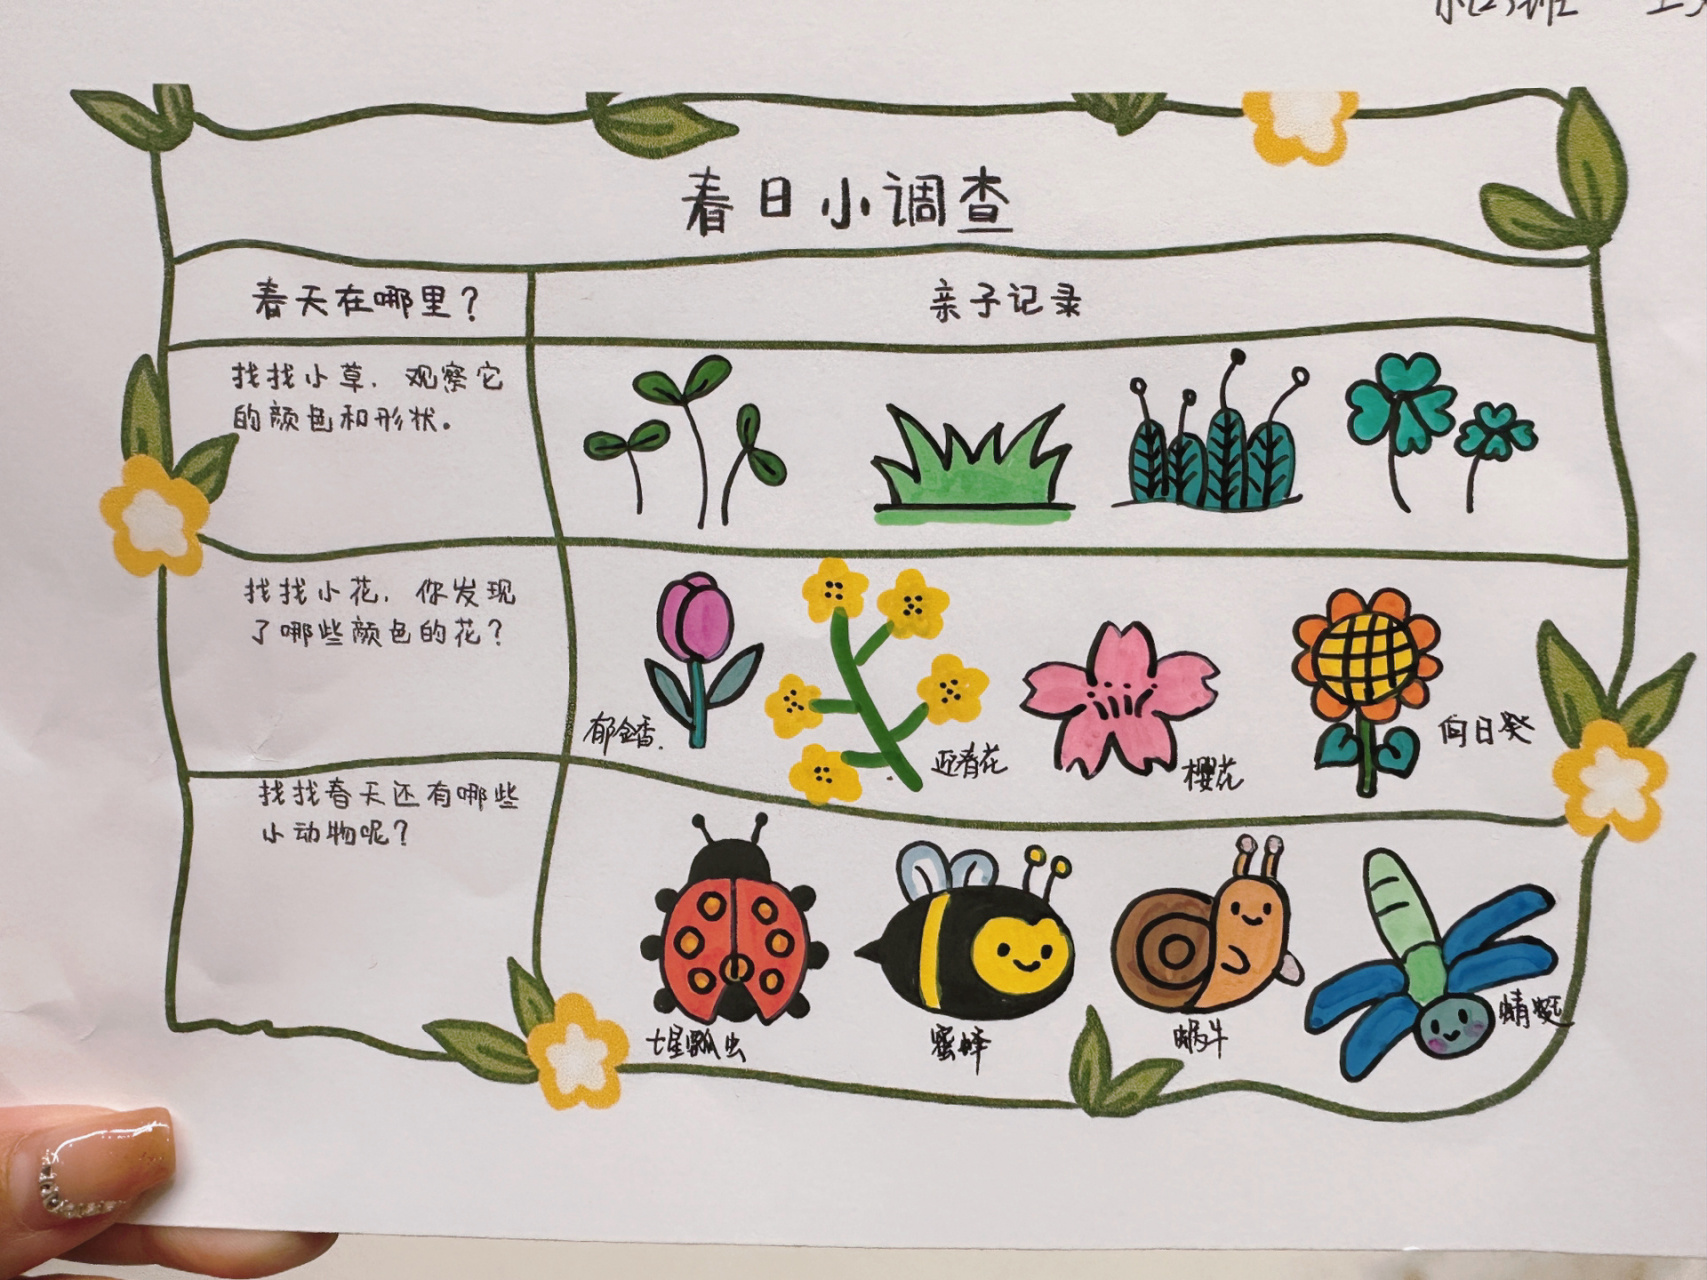 春日小调查
春天在哪里？
亲子记录
找找小草，观察它
的颜色和形状。
找找小花，你发现
了哪些颜色的花？
郁金香.
迎春花
樱花
向日葵
找找春天还有哪些
小动物呢？
七星瓢虫
蜜蜂
蜗牛
蜻蜓